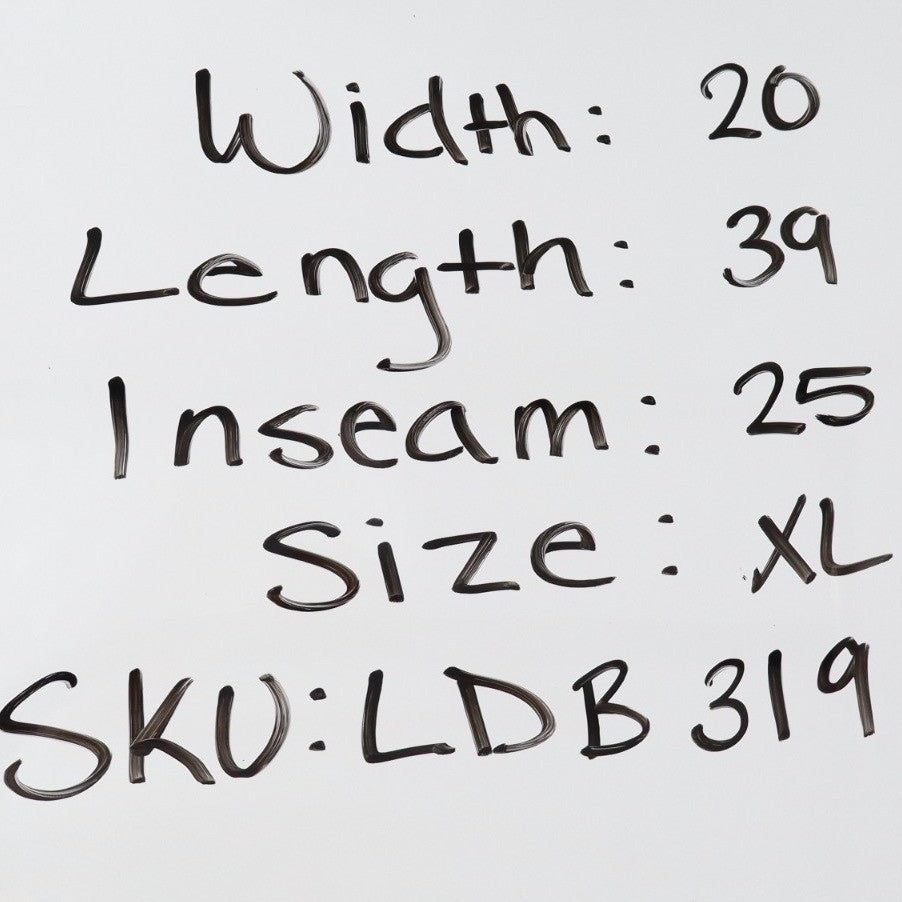 Width: 20
Length: 39
Inseam: 25
Size: XL
SKU: LDB 319